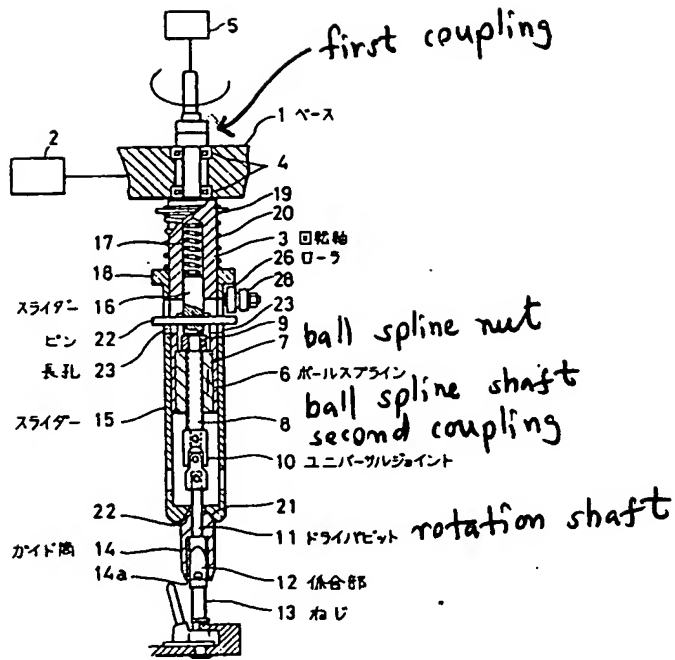 5
first coupling
1 ベース
2
4
19
20
17
3 回転軸
18
26 ローラ
28
スライダー 16
23
9
ピン 22
7 ball spline nut
長孔 23
6 ボールスプライン
スライダー 15
8 ball spline shaft
second coupling
10 ユニバーサルジョイント
21
22
11 ドライバビット rotation shaft
ガイド筒 14
14a
12 係合部
13 ねじ